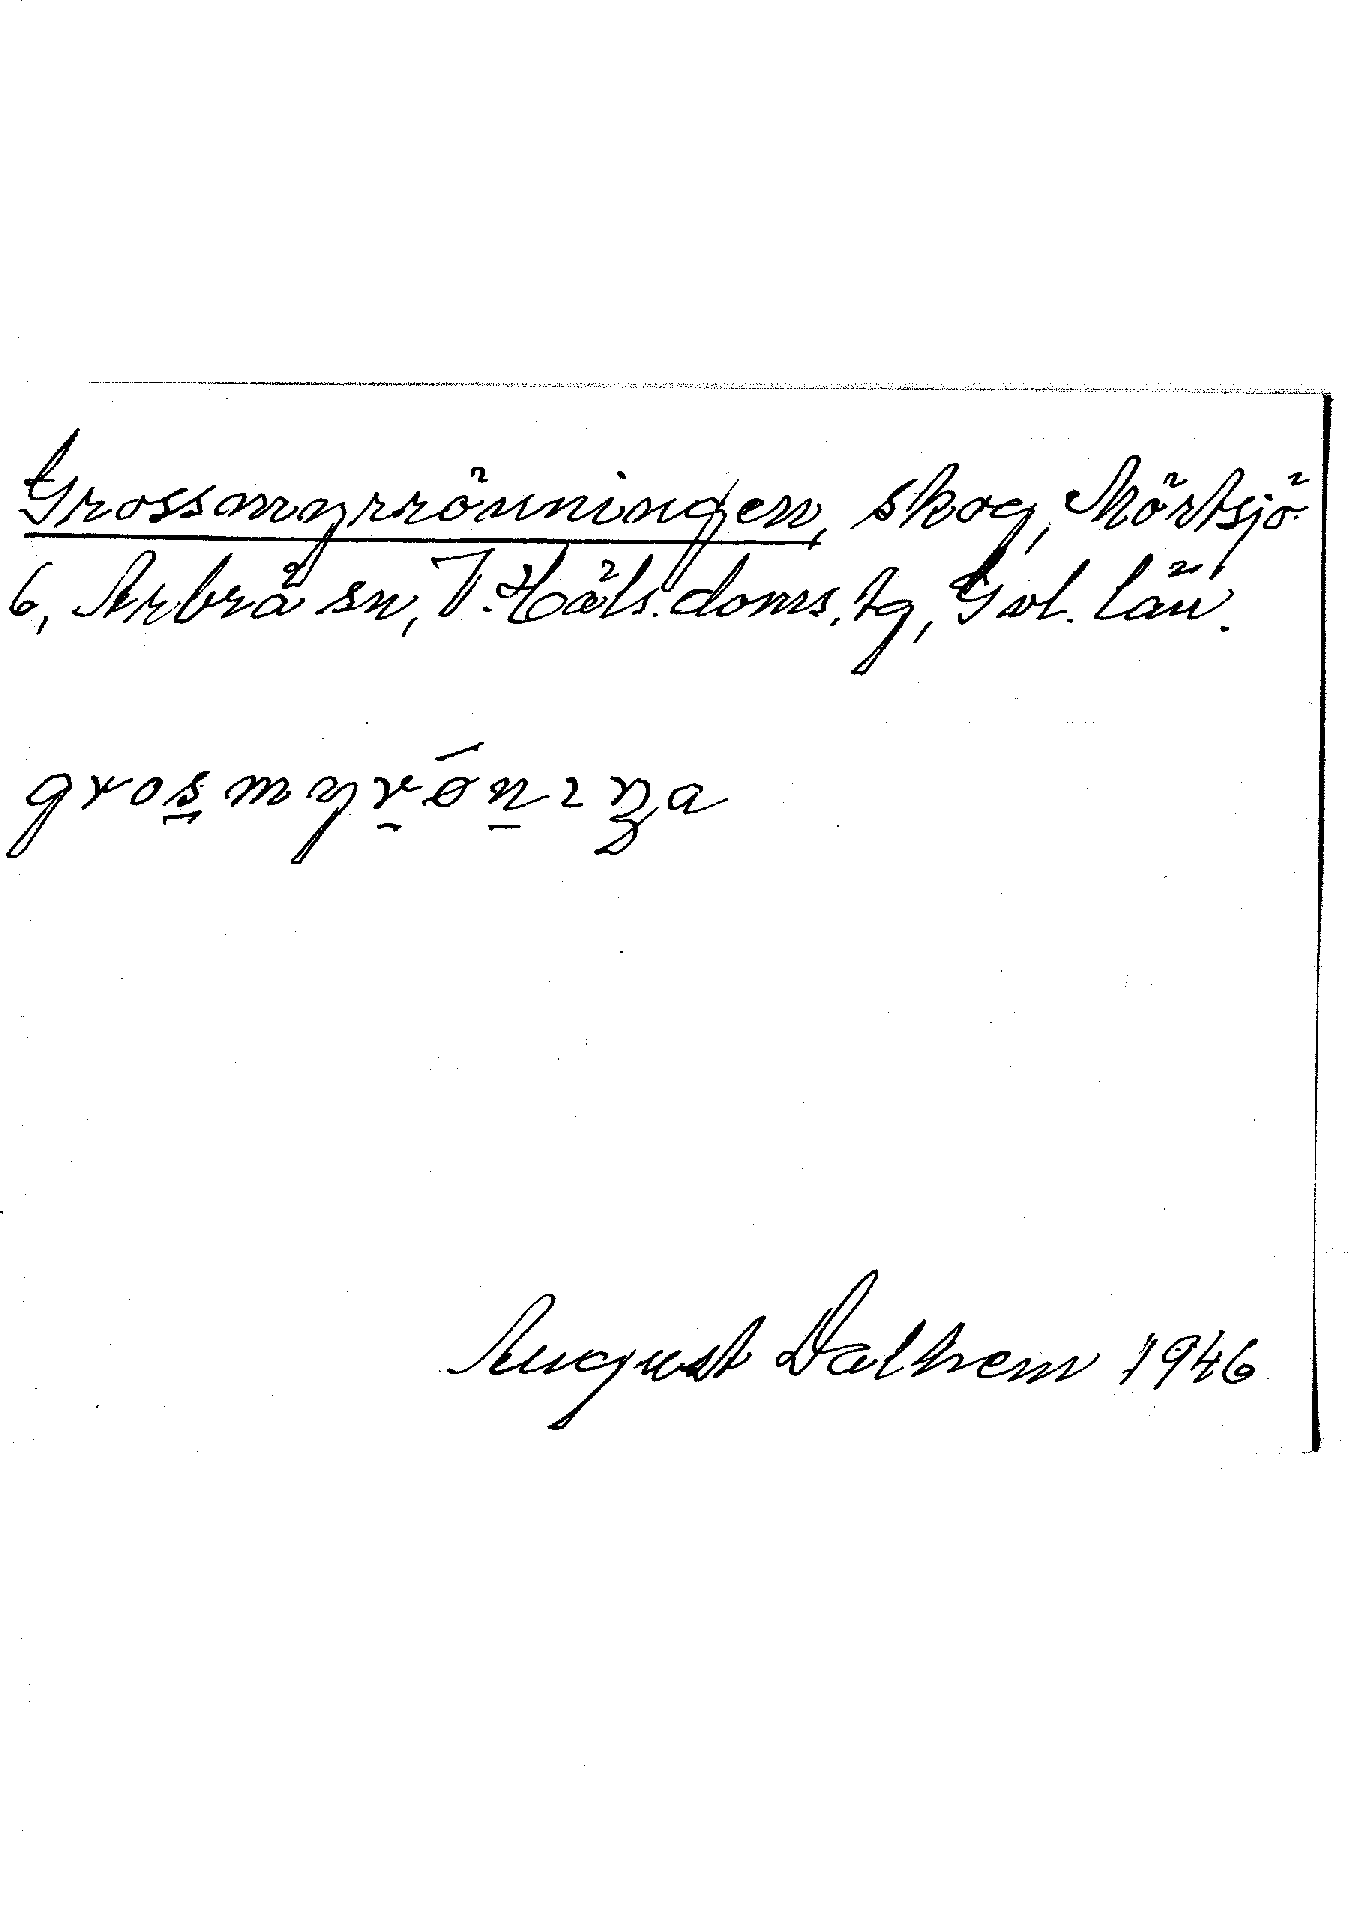 Grossmyrrönningen, skog, Mörtsjö
6, Arbrå sn, V. Häls. doms. tg, Gvl. län.
grosmyrǿnıŋa
August Dalhem 1946